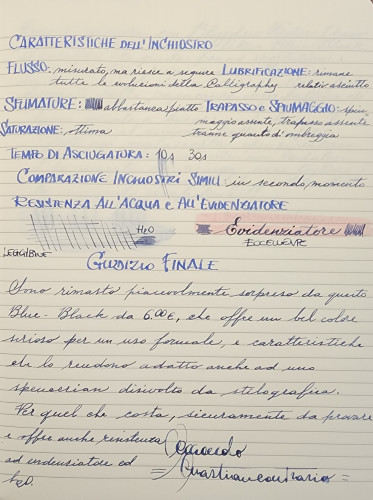 CARATTERISTICHE DELL'INCHIOSTRO
FLUSSO: misurato, ma riesce a seguire LUBRIFICAZIONE: rimane
tutte le evoluzioni della Calligraphy relativ asciutto
SFUMATURE: abbastanza piatto TRAPASSO e SPIUMAGGIO: spiu-
SATURAZIONE: ottima maggio assente, trapasso assente
tranne quando si ombreggia
TEMPO DI ASCIUGATURA: 10s 30s
COMPARAZIONE INCHIOSTRI SIMILI: in secondo momento
RESISTENZA ALL'ACQUA e ALL'EVIDENZIATORE
H2O Evidenziatore
LEGGIBILE ECCELLENTE
GIUDIZIO FINALE
Sono rimasto piacevolmente sorpreso da questo
Blue-Black da 6.00€, che offre un bel colore
serioso per un uso formale, e caratteristiche
che lo rendono adatto anche ad uno
spencerian disinvolto da stilografica.
Per quel che costa, sicuramente da provare
e offre anche resistenza
ad evidenziatore ed
H2O.